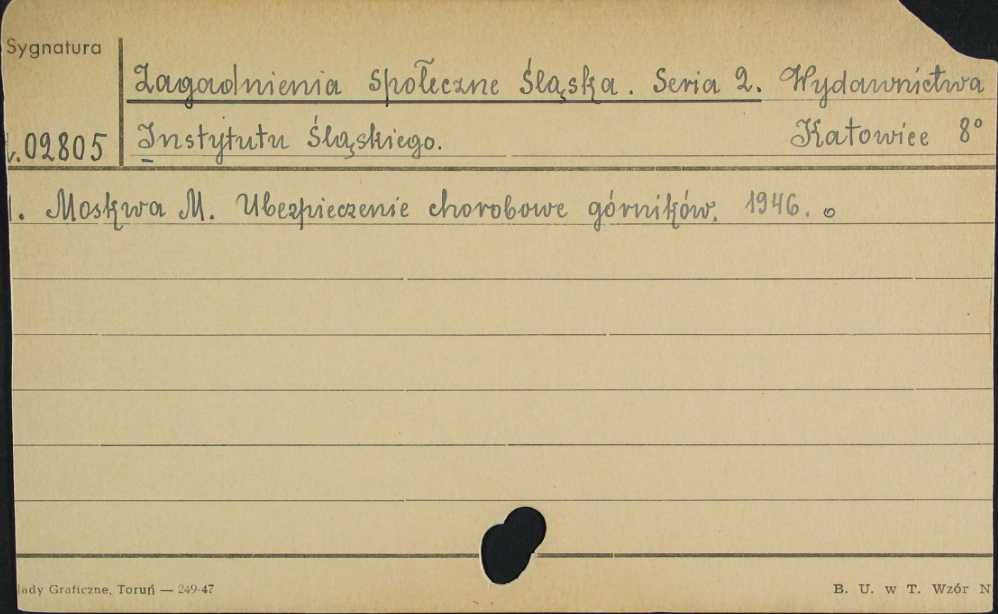 Sygnatura
Zagadnienia Społeczne Śląska. Seria 2. Wydawnictwa
02805 Instytutu Śląskiego. Katowice 8°
1. Moskwa M. Ubezpieczenie chorobowe górników. 1946.
Graficzne, Toruń — 249-47 B. U. w T. Wzór N